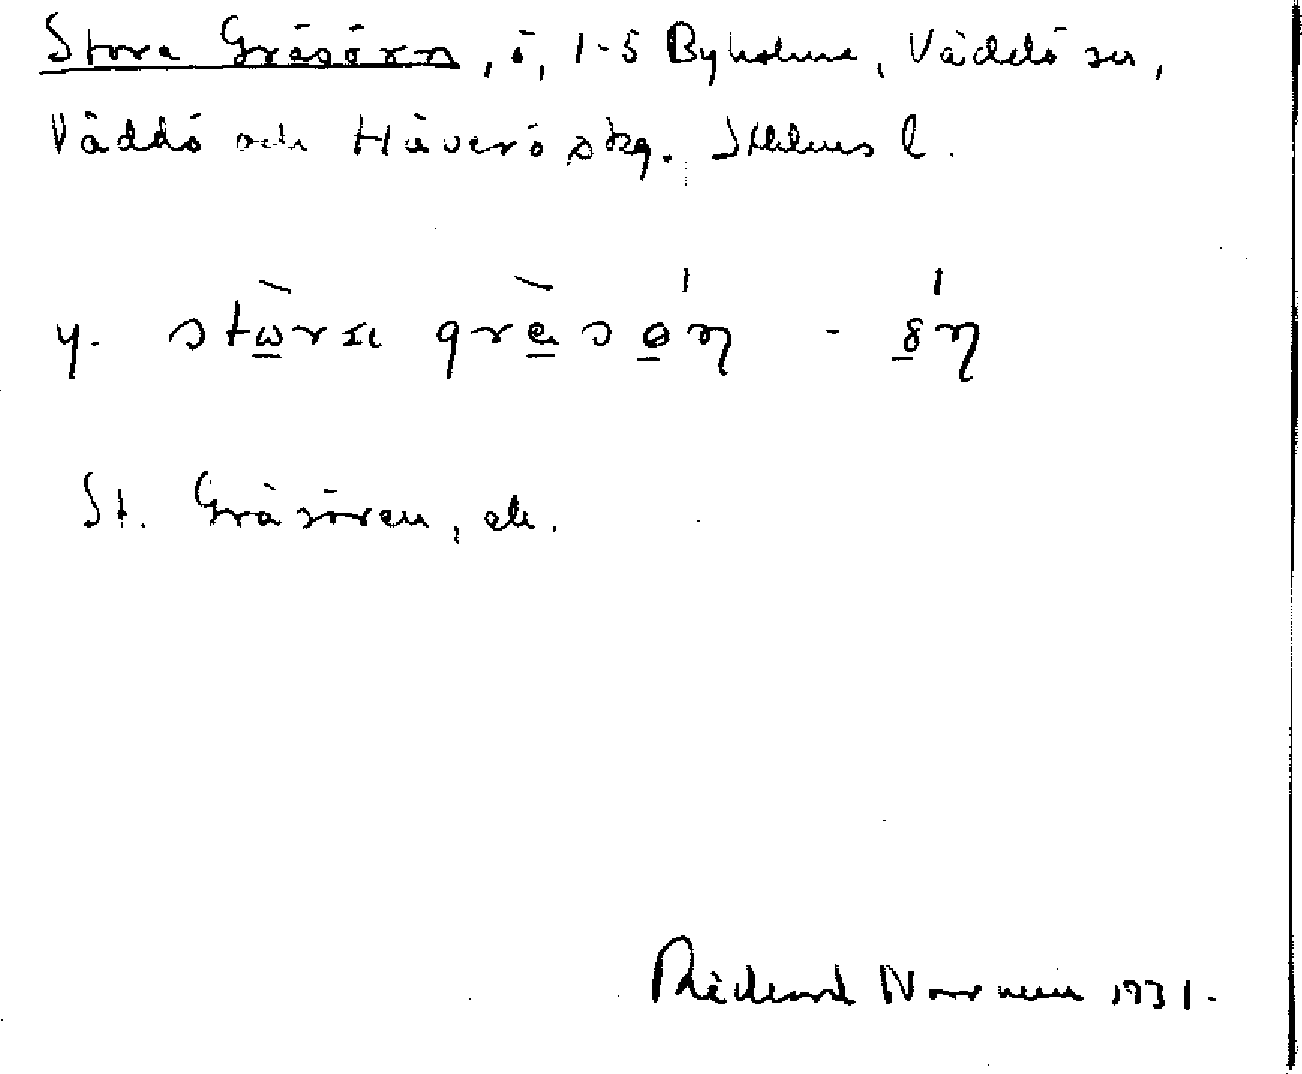 Stora Gräsörn, ö, 1-5 Byholma, Väddö sn,
Väddö och Häverö skg. Sthlms l.
y.
St. Gräsören, ek.
Rickard Norrman 1931.